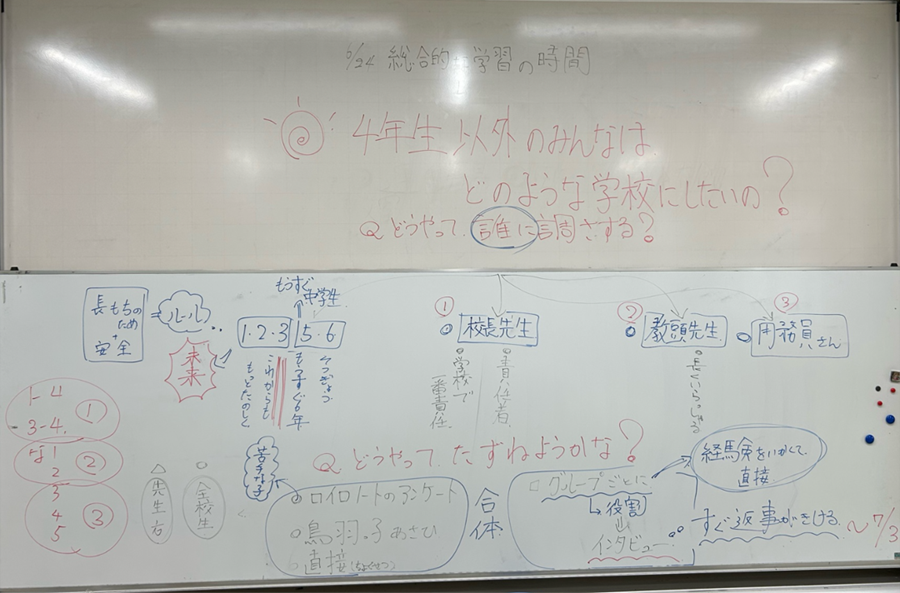 6/24 総合的な学習の時間
4年生以外のみんなは
どのような学校にしたいの?
Q どうやって、誰に調さする?
もうすぐ
中学生
長もちの
ため
+
安全
=
ルール
未来
1・2・3
5・6
これからも
もっとたのしく
もうすぐ6年
①
校長先生
学校で
一番責任
責任者
②
教頭先生
長くいらしゃる
③
用務員さん
1-4
3-4.
①
な1
2
②
3
4
5
③
△先生方
○全校生
Q どうやって、たずねようかな?
苦手な子
ロイロノートのアンケート
鳥羽.子 あさひ
直接
合体
グループごとに
↳役割
インタビュー
経験をいかして、
直接
すぐ返事がきける
~7/3